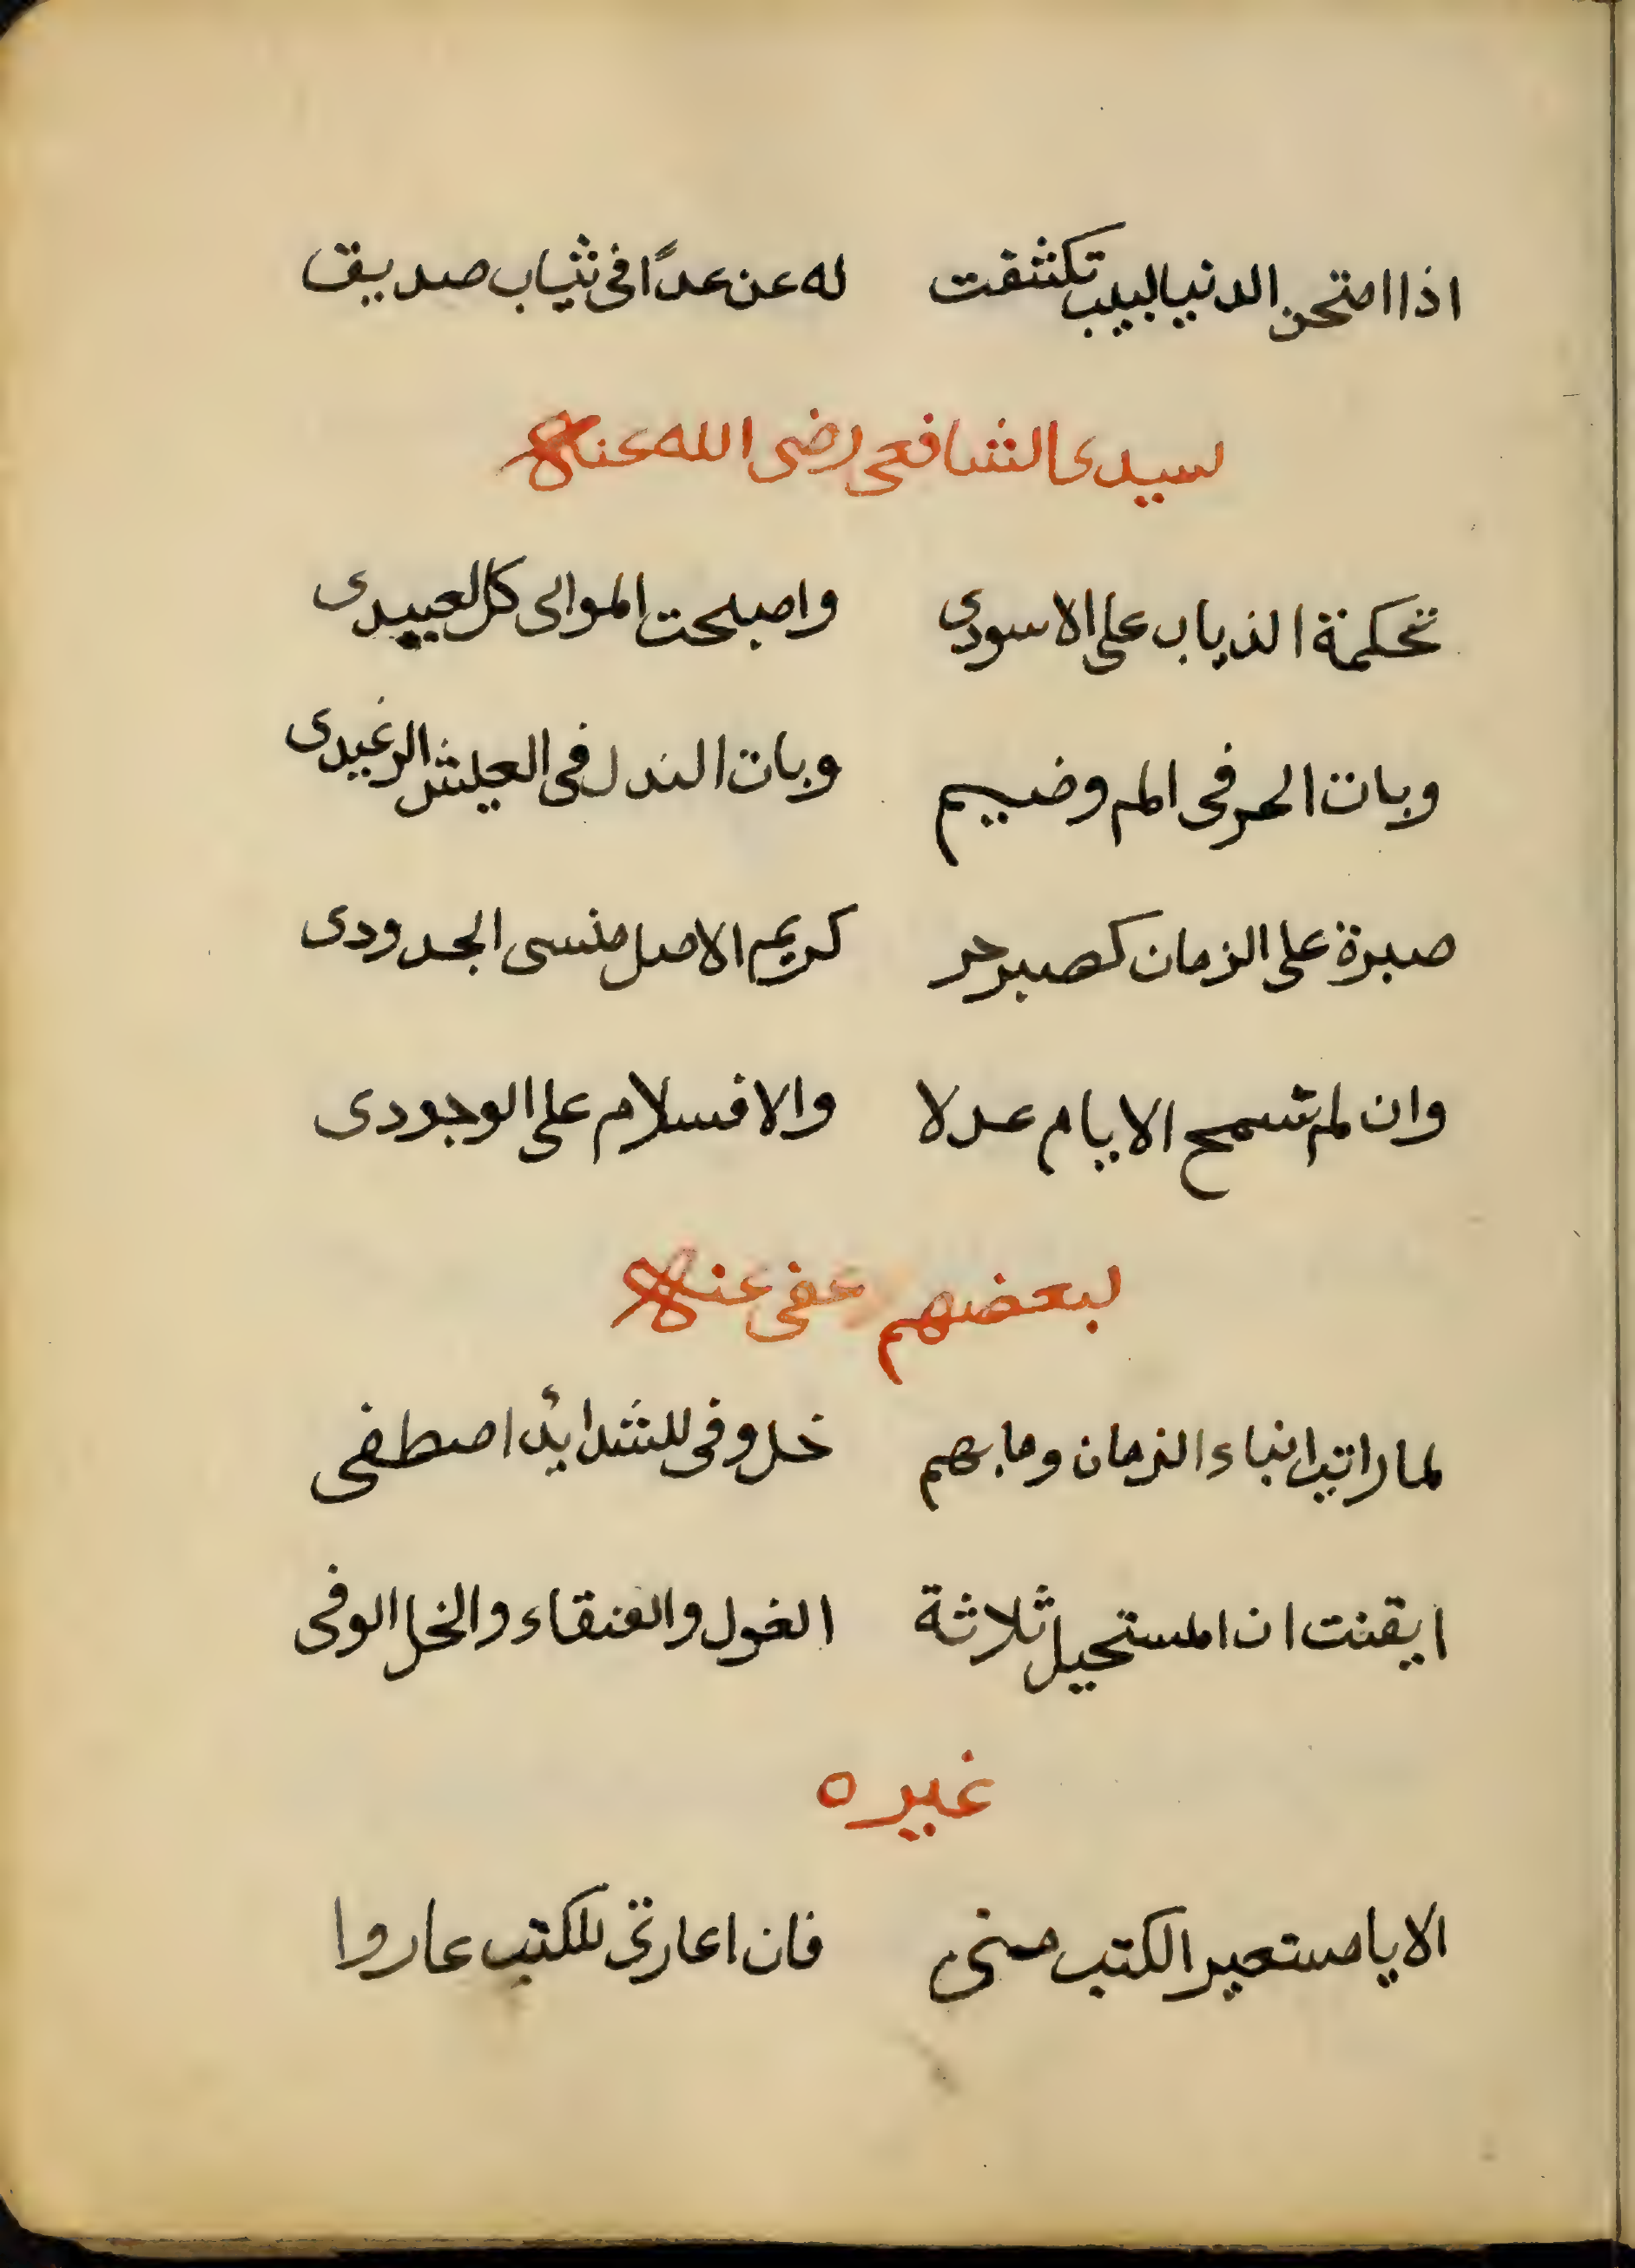 اذا امتحن الدنيا لبيب تكشفت له عن عدًا فى ثياب صديق
لسيدى الشافعى رضى الله عنه
تحكمة الذياب على الاسودى واصبحت الموالى كالعبيدى
وبات الحر فى الم وضيم وبات الندل فى العيش الرغيدى
صبرة على الزمان كصبر حر كريم الاصل منسى الجدودى
وان لم تسمح الايام عدلا والا فسلام على الوجودى
لبعضهم عفى عنه
لما رايت ابناء الزمان وما بهم خل وفى للشدائد اصطفى
ايقنت ان المستحيل ثلاثة الغول والعنقاء والخل الوفى
غيره
الا يا مستعير الكتب منى فان اعارتى للكتب عاروا